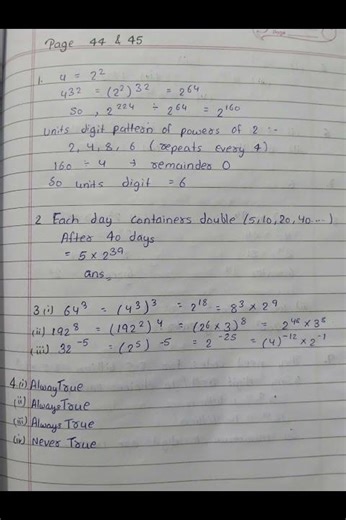 Page 44 & 45
1. 4 = 2²
4³² = (2²)³² = 2⁶⁴
So, 2²²⁴ ÷ 2⁶⁴ = 2¹⁶⁰
Units digit pattern of powers of 2 :-
2, 4, 8, 6 (repeats every 4)
160 ÷ 4 → remainder 0
So units digit = 6
2 Each day containers double (5,10,20,40...)
After 40 days
= 5 × 2³⁹
ans.
3 (i) 64³ = (4³)³ = 2¹⁸ = 8³ × 2⁹
(ii) 192⁸ = (192²)⁴ = (2⁶ × 3)⁸ = 2⁴⁸ × 3⁸
(iii) 32⁻⁵ = (2⁵)⁻⁵ = 2⁻²⁵ = (4)⁻¹² × 2⁻¹
4. (i) Alway True
(ii) Always True
(iii) Always True
(iv) Never True